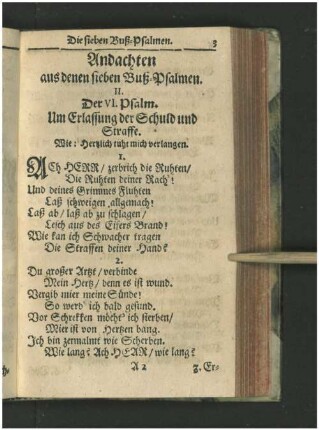 Die sieben Buß-Psalmen. 3
Andachten
aus denen sieben Buß-Psalmen.
II.
Der VI. Psalm.
Um Erlassung der Schuld und
Straffe.
Wie: Hertzlich tuht mich verlangen.
1.
Ach HERR / zerbrich die Ruhten /
Die Ruhten deiner Rach!
Und deines Grimmes Fluhten
Laß schweigen allgemach!
Laß ab / laß ab zu schlagen /
Lesch aus des Eifers Brand!
Wie kan ich Schwacher tragen
Die Straffen deiner Hand?
2.
Du großer Artzt / verbinde
Mein Hertz / denn es ist wund.
Vergib mier meine Sünde!
So werd' ich bald gesund.
Vor Schrekken möcht' ich sterben /
Mier ist von Hertzen bang.
Ich bin zermalmt wie Scherben.
Wie lang? Ach HERR / wie lang?
A 2 3. Er-